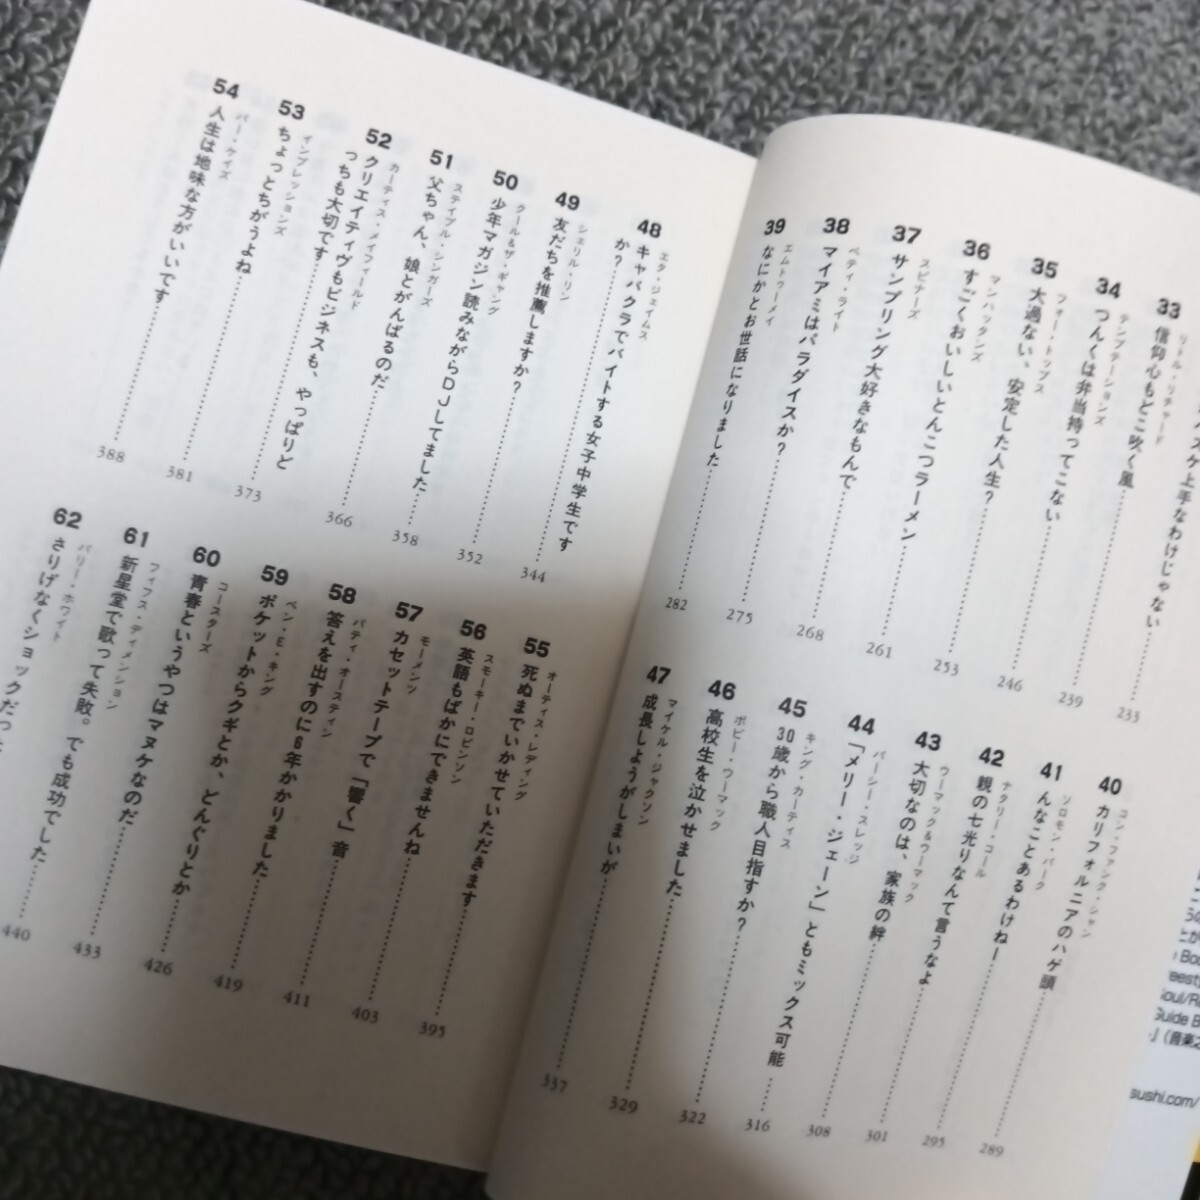 バスケ上手なわけじゃない
233
33 リトル・リチャード
信仰心もどこ吹く風
239
34 テンプテーションズ
つんくは弁当持ってこない
246
35 フォー・トップス
大過ない、安定した人生?
253
36 マンハッタンズ
すごくおいしいとんこつラーメン
261
37 スピナーズ
サンプリング大好きなもんで
268
38 ベティ・ライト
マイアミはパラダイスか?
275
39 エムトゥーメイ
なにかとお世話になりました
282
40 コン・ファンク・シャン
カリフォルニアのハゲ頭
289
41 ソロモン・バーク
んなことあるわけねー
295
42 ナタリー・コール
親の七光りなんて言うなよ
301
43 ウーマック&ウーマック
大切なのは、家族の絆
308
44 パーシー・スレッジ
「メリー・ジェーン」ともミックス可能
316
45 キング・カーティス
30歳から職人目指すか?
322
46 ボビー・ウーマック
高校生を泣かせました
329
47 マイケル・ジャクソン
成長しようがしまいが
337
48 エタ・ジェイムス
キャバクラでバイトする女子中学生です
か?
344
49 シェリル・リン
友だちを推薦しますか?
352
50 クール&ザ・ギャング
少年マガジン読みながらDJしてました
358
51 ステイプル・シンガーズ
父ちゃん、娘とがんばるのだ
366
52 カーティス・メイフィールド
クリエイティヴもビジネスも、やっぱりど
っちも大切です
373
53 インプレッションズ
ちょっとちがうよね
381
54 バー・ケイズ
人生は地味な方がいいです
388
55 オーティス・レディング
死ぬまでいかせていただきます
395
56 スモーキー・ロビンソン
英語もばかにできませんね
403
57 モーメンツ
カセットテープで「響く」音
411
58 パティ・オースティン
答えを出すのに6年かかりました
419
59 ベン・E・キング
ポケットからクギとか、どんぐりとか
426
60 コースターズ
青春というやつはマヌケなのだ
433
61 フィフス・ディメンション
新星堂で歌って失敗。でも成功でした
440
62 バリー・ホワイト
さりげなくショックだっ
Soul/R
Guide B
(音楽
sushi.com/